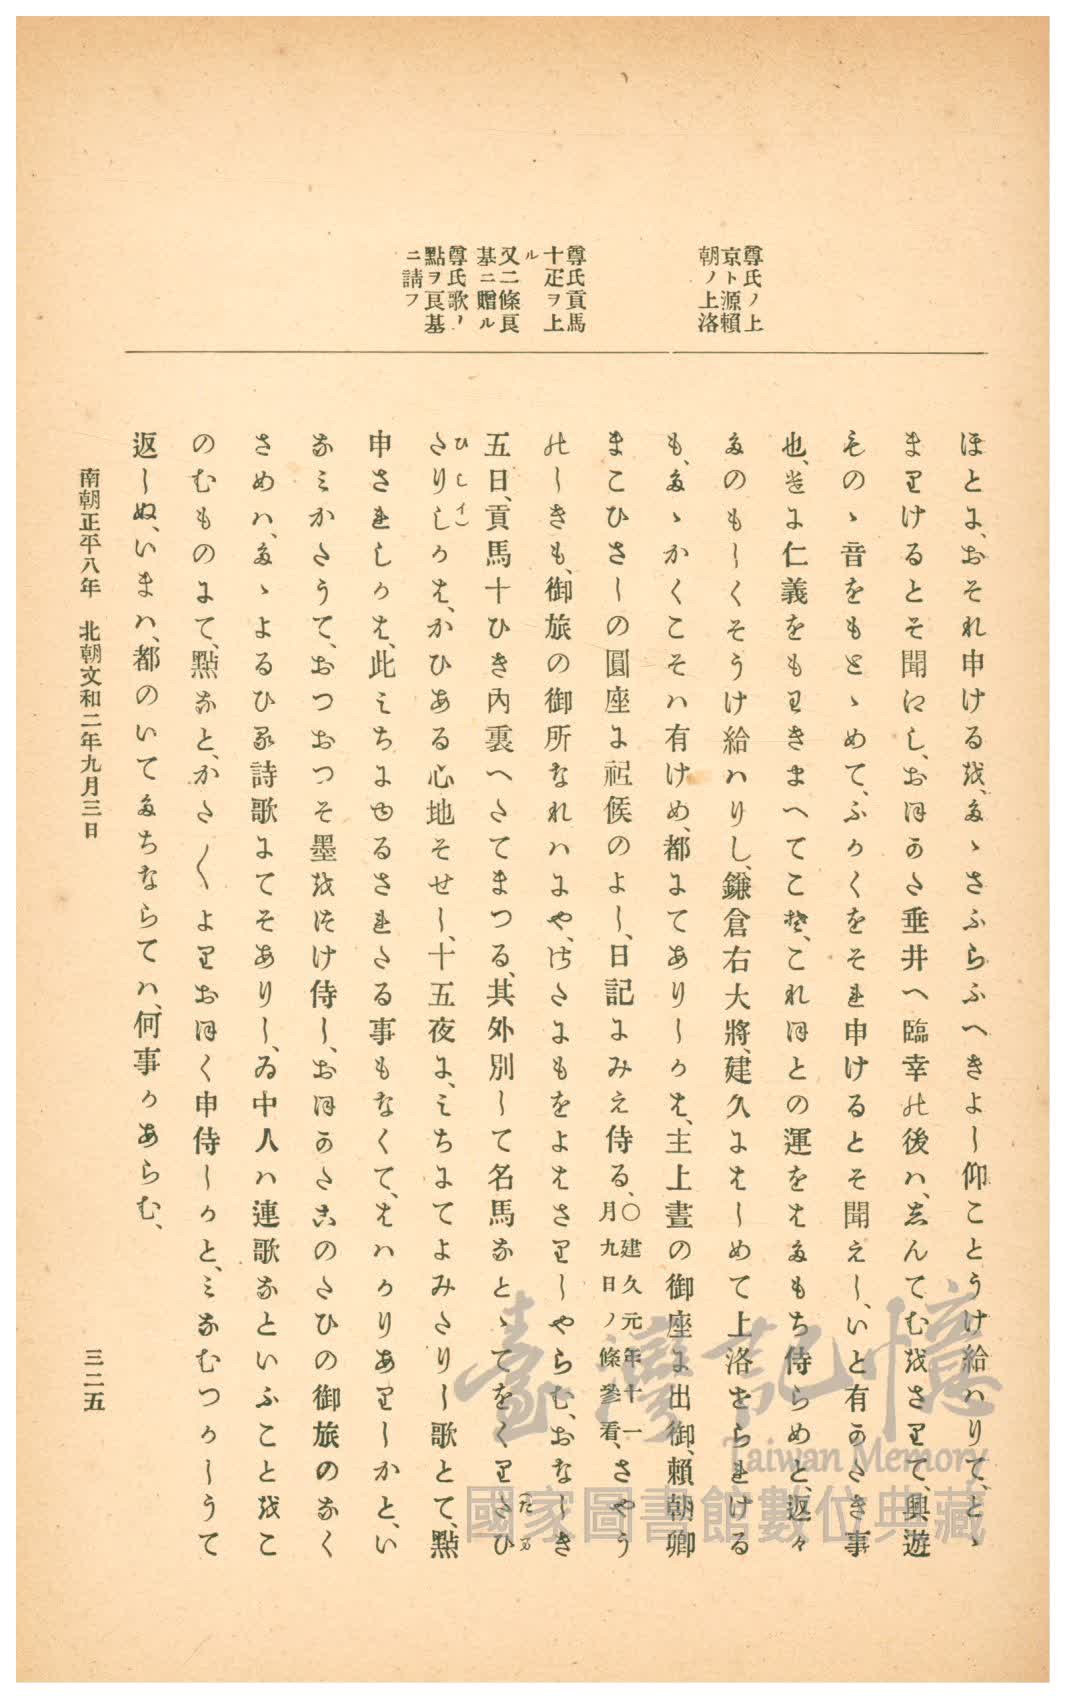 尊氏ノ上
京ト源賴
朝ノ上洛
尊氏貢馬
十疋ヲ上
ル
又二條良
基ニ贈ル
尊氏歌ノ
點ヲ良基
ニ請フ
ほとに、おそれ申けるを、たゝさふらふへきよし仰ことうけ給ハりて、とゝ
まりけるとそ聞えし、おほかた垂井へ臨幸の後ハ、しんてむをさりて、興遊
ものゝ音をもとゝめて、ふかくをそれ申けるとそ聞えし、いと有かたき事
也、けに仁義をもわきまへてこそ、これほとの運をはたもち侍らめと、返々
たのもしくそうけ給ハりし、鎌倉右大將、建久にはしめて上洛せられける
も、たゝかくこそハ有けめ、都にてありしかは、主上晝の御座に出御、賴朝卿
まこひさしの圓座に祗候のよし、日記にみえ侍る、〇建久元年十一月九日ノ條參看、さやう
のしきも、御旅の御所なれハにや、さたにもをよはさりしやらむ、おなしき
五日、貢馬十ひき內裏へたてまつる、其外別して名馬なとゝてをくりたひ
たりしかは、かひある心地そせし、十五夜に、みちにてよみたりし歌とて、點
申されしかは、此みちにゆるされたる事もなくて、はハかりありしかと、い
なみかたうて、おつおつそ墨をつけ侍し、おほかたこのたひの御旅のなく
さめハ、たゝよるひる詩歌にてそありし、ゐ中人ハ連歌なといふことをこ
のむものにて、點なと、かた〳〵よりおほく申侍しかと、みなむつかしうて
返しぬ、いまハ、都のいてたちならてハ、何事かあらむ、
南朝正平八年　北朝文和二年九月三日
三二五
臺灣記憶
Taiwan Memory
國家圖書館數位典藏